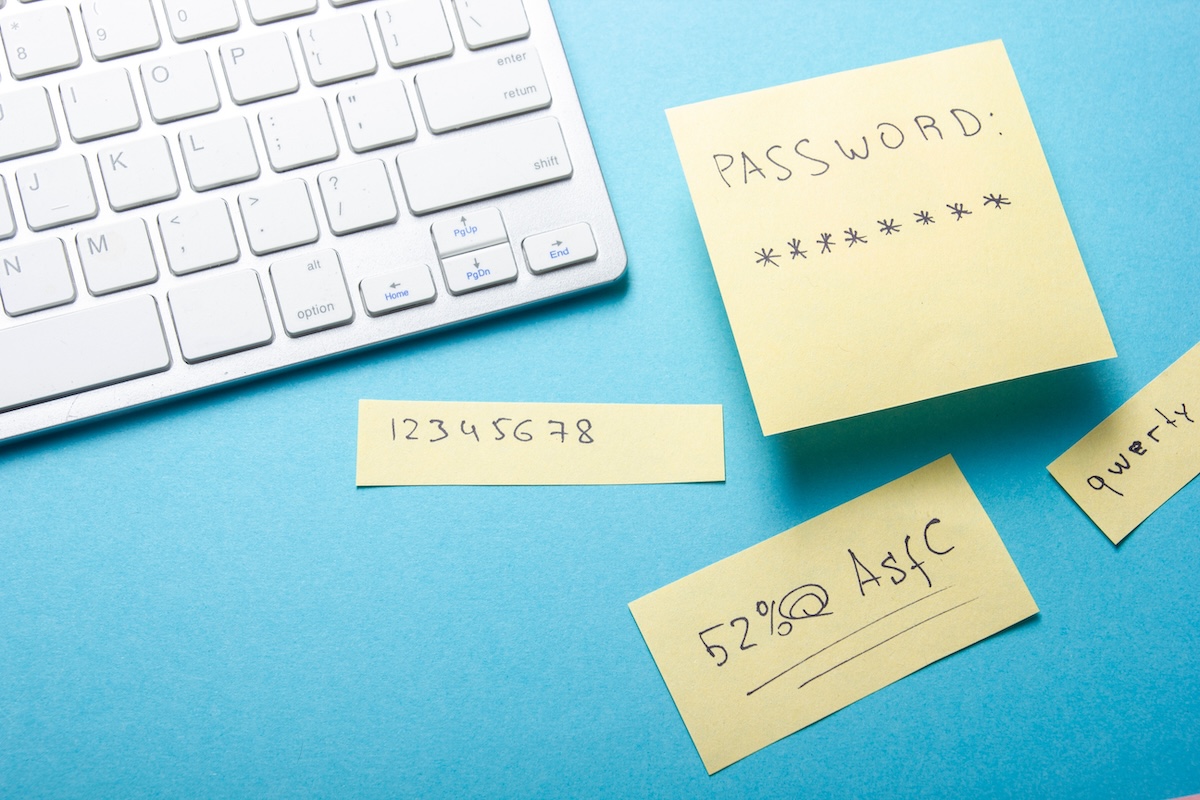 * 8
( 9
0
I
O
P
{ [
} ]
\
J
K
L
: ;
" '
enter
return
N
M
< ,
> .
? /
shift
alt
option
Home
PgUp
PgDn
End
PASSWORD:
********
12345678
qwerty
52%@ AsfC